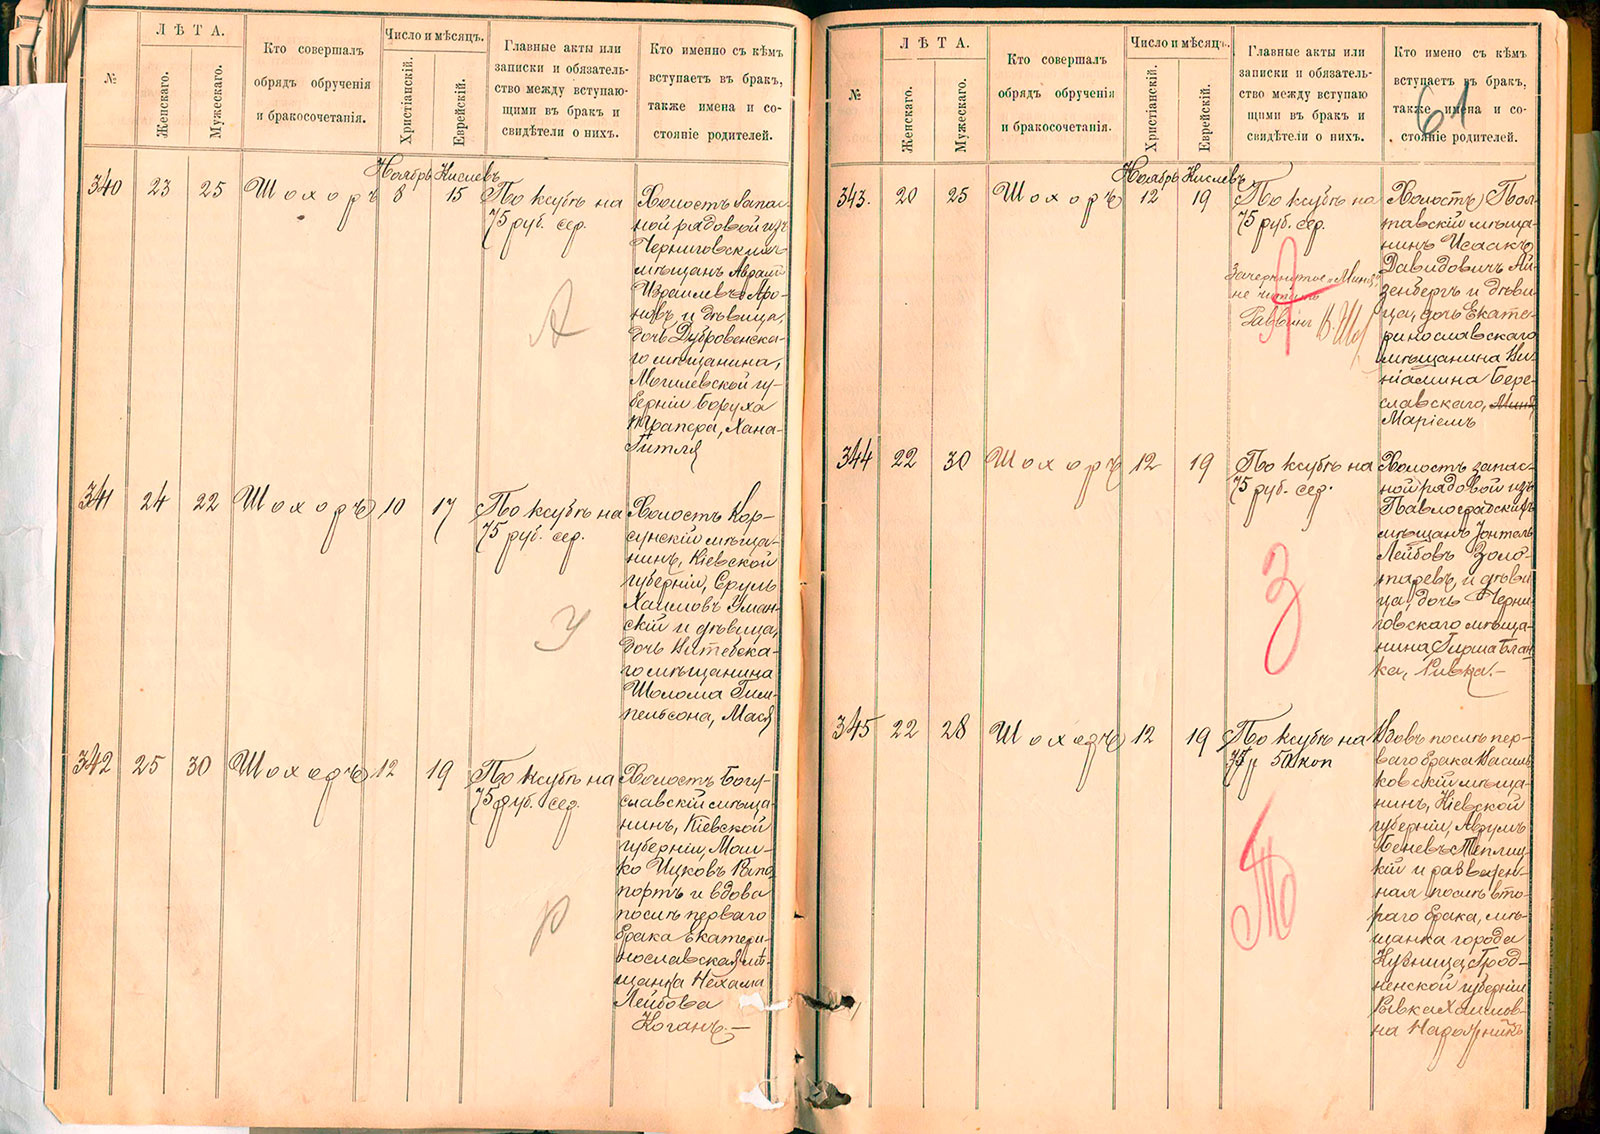 №
Л Ѣ Т А.
Женскаго.
Мужескаго.
Кто совершалъ
обрядъ обрученія
и бракосочетанія.
Число и мѣсяцъ.
Христіанскій.
Еврейскій.
Главные акты или
записки и обязатель-
ство между вступаю-
щими въ бракъ и
свидѣтели о нихъ.
Кто именно съ кѣмъ
вступаетъ въ бракъ,
также имена и со-
стояніе родителей.
Ноябрь Кислевъ
340 23 25 Шохоръ 8 15 По ксубѣ на
75 руб. сер.
А
Холостъ запас-
ной рядовой изъ
Черниговскихъ
мѣщанъ Аврамъ
Израилевъ Аро-
новъ и дѣвица,
дочь Дубровенска-
го мѣщанина,
Могилевской гу-
берніи Боруха
Трапера, Хана-
Гитля
341 24 22 Шохоръ 10 17 По ксубѣ на
75 руб. сер.
У
Холостъ Кор-
сунскій мѣща-
нинъ, Кіевской
губерніи, Сруль
Хаимовъ Уман-
скій и дѣвица,
дочь Витебска-
го мѣщанина
Шолома Гим-
пельсона, Мася
342 25 30 Шохоръ 12 19 По ксубѣ на
75 руб. сер.
Р
Холостъ Богу-
славскій мѣща-
нинъ, Кіевской
губерніи, Мош-
ко Ицковъ Рапо-
портъ и вдова
послѣ перваго
брака Екатери-
нославская мѣ-
щанка Нехама
Лейбова
Коганъ.—
№
Л Ѣ Т А.
Женскаго.
Мужескаго.
Кто совершалъ
обрядъ обрученія
и бракосочетанія.
Число и мѣсяцъ.
Христіанскій.
Еврейскій.
Главные акты или
записки и обязатель-
ство между вступаю
щими въ бракъ и
свидѣтели о нихъ.
Кто имено съ кѣмъ
вступаетъ въ бракъ,
также имена и со-
стояніе родителей.
61
Ноябрь Кислевъ
343. 20 25 Шохоръ 12 19 По ксубѣ на
75 руб. сер.
Зачеркнутое „Миня“
не читать
Раввинъ
А
Холостъ Пол-
тавскій мѣща-
нинъ Исаакъ
Давидовичъ Ай-
зенбергъ и дѣви-
ца, дочь Екате-
ринославскаго
мѣщанина Ви-
ніамина Бере-
славскаго, Миня,
Маріемъ
344 22 30 Шохоръ 12 19 По ксубѣ на
75 руб. сер.
З
Холостъ запас-
ной рядовой изъ
Павлоградскихъ
мѣщанъ Іонтель
Лейбовъ Золо-
таревъ, и дѣви-
ца, дочь Черни-
говскаго мѣща-
нина Гирша Блан-
ка, Ривка.—
345 22 28 Шохоръ 12 19 По ксубѣ на
37р 50 коп
Т
Вдовъ послѣ пер-
ваго брака Василь-
ковскій мѣща-
нинъ, Кіевской
губерніи, Аврумъ
Беневъ Теплиц-
кій и разведен-
ная послѣ вто-
раго брака, мѣ-
щанка города
Кузница, Грод-
ненской губерніи
Рывка Хаимов-
на